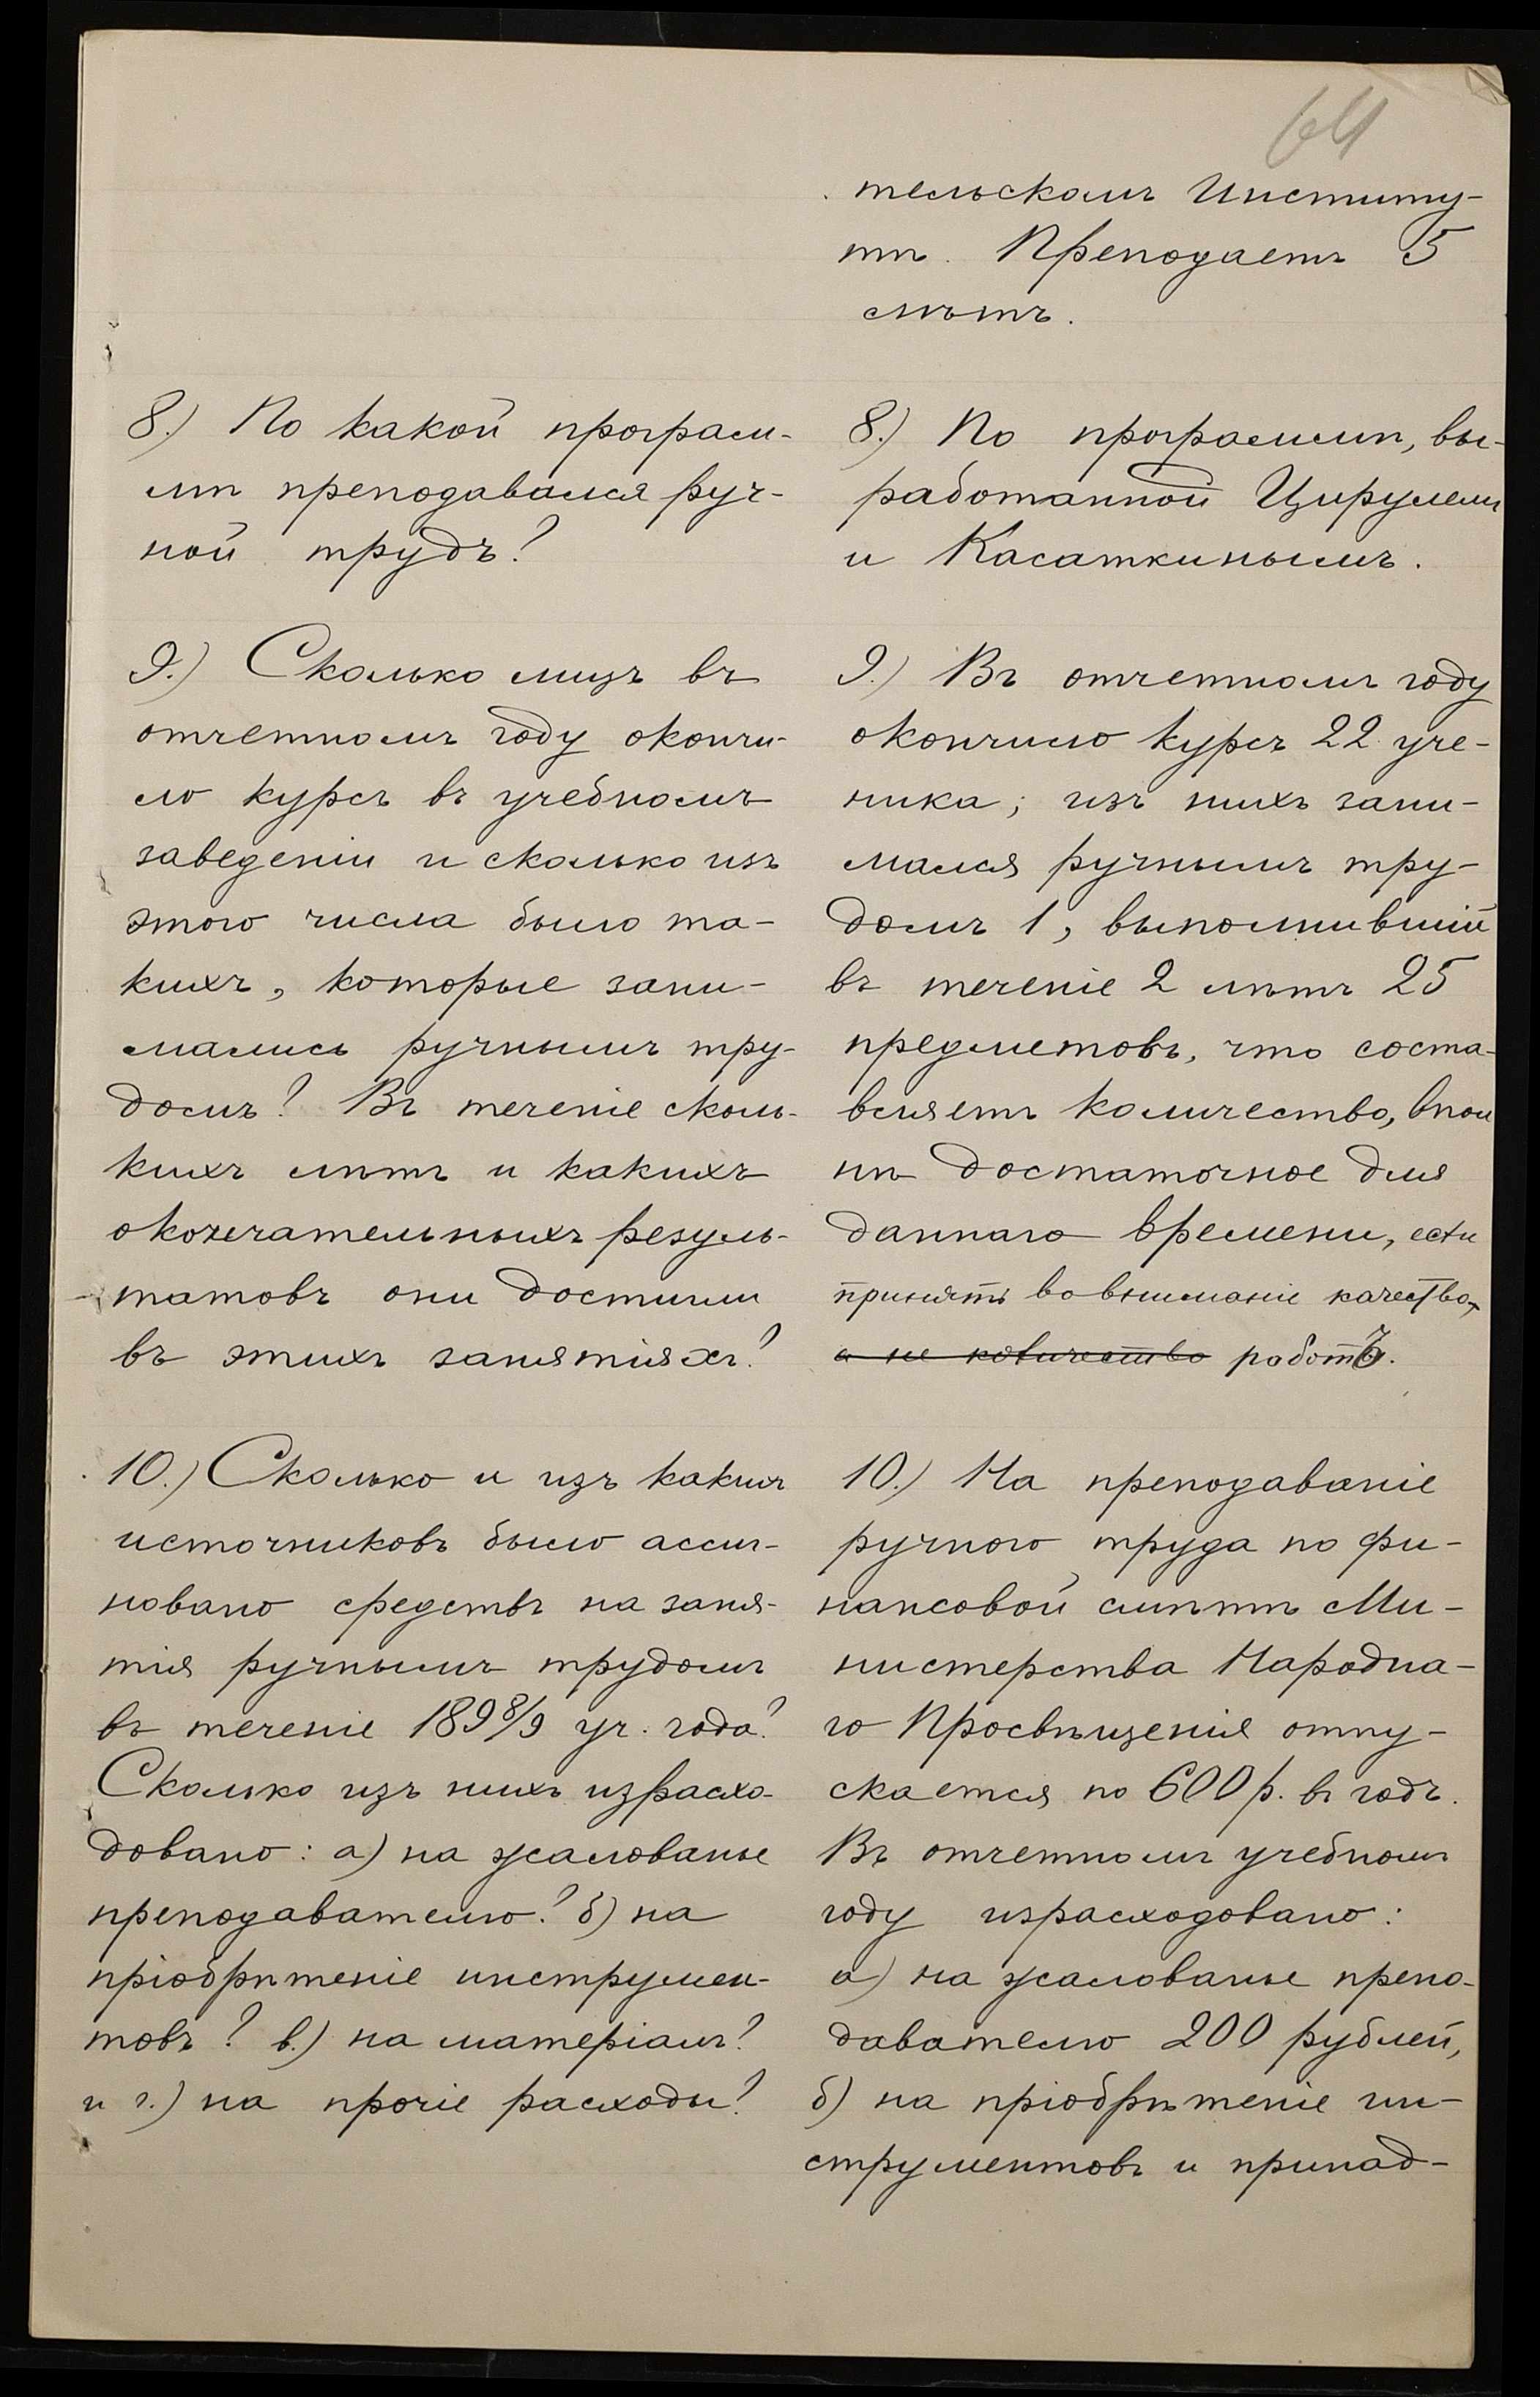 64
тельскомъ Институ-
тѣ. Преподаетъ 5
лѣтъ.
8.) По какой програм-
мѣ преподавался руч-
ной трудъ?
8.) По программѣ, вы-
работанной Цирулемъ
и Касаткинымъ.
9.) Сколько лицъ въ
отчетномъ году окончи-
ло курсъ въ учебномъ
заведеніи и сколько изъ
этого числа было та-
кихъ, которые зани-
мались ручнымъ тру-
домъ? Въ теченіе сколь-
кихъ лѣтъ и какихъ
окончательныхъ резуль-
татовъ они достигли
въ этихъ занятіяхъ?
9.) Въ отчетномъ году
окончило курсъ 22 уче-
ника; изъ нихъ зани-
мался ручнымъ тру-
домъ 1, выполнившій
въ теченіе 2 лѣтъ 25
предметовъ, что соста-
вляетъ количество, впол
нѣ достаточное для
даннаго времени, если
принять во вниманіе качество,
а не количество работъ.
10.) Сколько и изъ какихъ
источниковъ было ассиг-
новано средствъ на заня-
тія ручнымъ трудомъ
въ теченіе 1898/9 уч. года?
Сколько изъ нихъ израсхо-
довано: а) на жалованье
преподавателю? б) на
пріобрѣтеніе инструмен-
товъ? в.) на матеріалъ?
и г.) на прочіе расходы?
10.) На преподаваніе
ручного труда по фи-
нансовой смѣтѣ Ми-
нистерства Народна-
го Просвѣщенія отпу-
скается по 600 р. въ годъ.
Въ отчетномъ учебномъ
году израсходовано:
а) на жалованье препо-
давателю 200 рублей,
б) на пріобрѣтеніе ин-
струментовъ и принад-